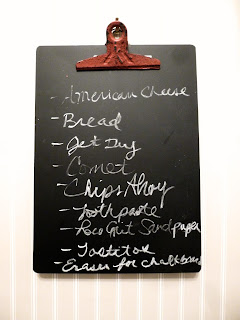 - American Cheese
- Bread
- Jet Dry
- Comet
- Chips Ahoy
- Toothpaste
- Grit Sandpaper
- Eraser for chalkboard